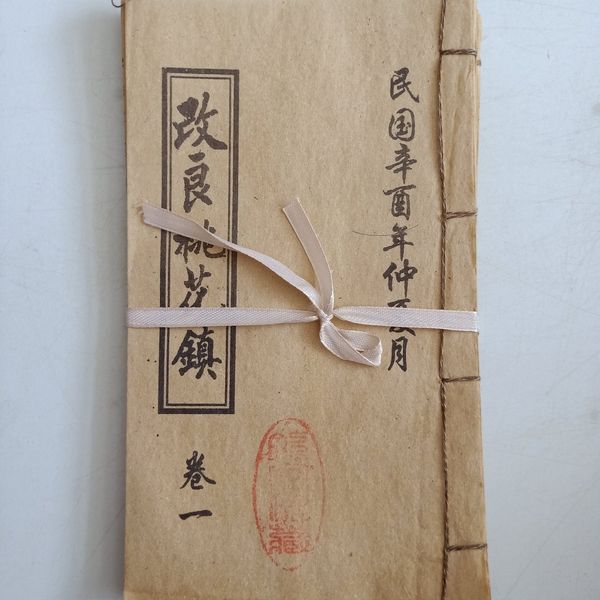 民国辛酉年仲夏月
改良桃花鎮
卷一